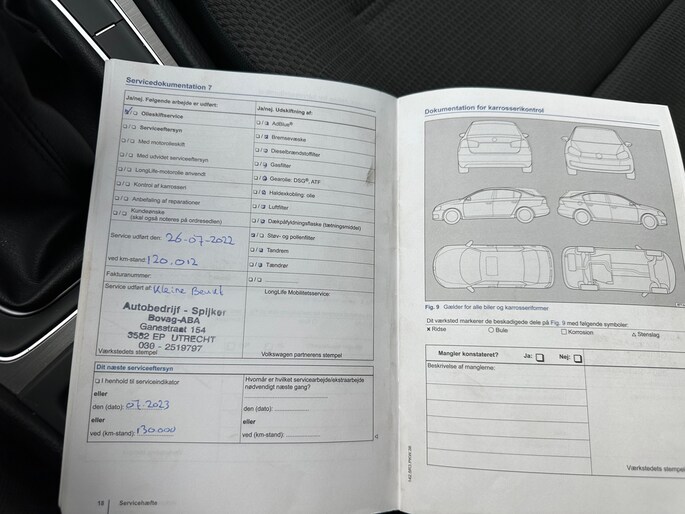 Servicedokumentation 7
Ja/nej. Følgende arbejde er udført:
Olieskiftservice
Serviceeftersyn
Med motorolieskift
Med udvidet serviceeftersyn
LongLife-motorolie anvendt
Kontrol af karrosseri
Anbefaling af reparationer
Kundeønske
(skal også noteres på ordresedlen)
Service udført den: 26-07-2022
ved km-stand: 120.012
Fakturanummer:
Service udført af: Kleine Beurt
Autobedrijf - Spijker
Bovag-ABA
Gansstraat 154
3582 EP UTRECHT
030 - 2519797
Værkstedets stempel
Ja/nej. Udskiftning af:
AdBlue®
Bremsevæske
Dieselbrændstoffilter
Gasfilter
Gearolie: DSG®, ATF
Haldexkobling: olie
Luftfilter
Dækpåfyldningsflaske (tætningsmiddel)
Støv- og pollenfilter
Tandrem
Tændrør
LongLife Mobilitetsservice:
Volkswagen partnerens stempel
Dit næste serviceeftersyn
I henhold til serviceindikator
eller
den (dato): 07-2023
eller
ved (km-stand): 130.000
Hvornår er hvilket servicearbejde/ekstraarbejde
nødvendigt næste gang?
den (dato):
eller
ved (km-stand):
18 Servicehæfte
Dokumentation for karrosserikontrol
Fig. 9 Gælder for alle biler og karrosseriformer
Dit værksted markerer de beskadigede dele på Fig. 9 med følgende symboler:
× Ridse ○ Bule □ Korrosion △ Stenslag
Mangler konstateret? Ja: Nej:
Beskrivelse af manglerne:
Værkstedets stempel